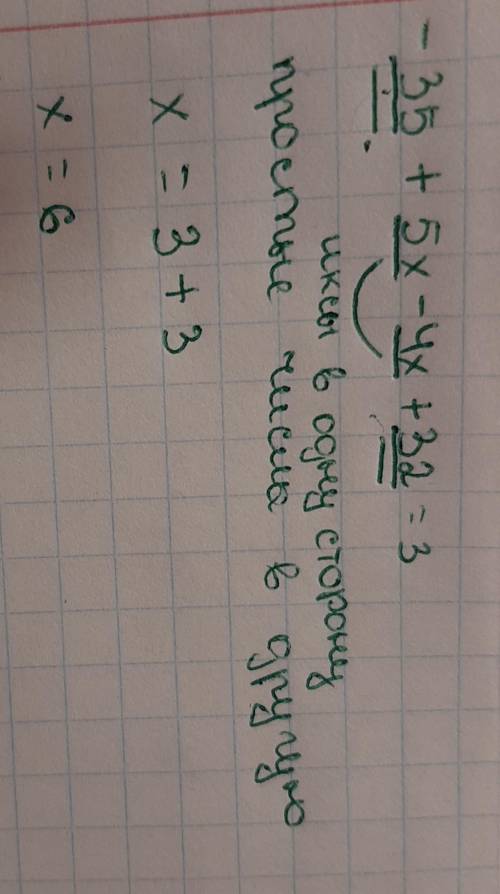 -35 + 5x - 4x + 32 = 3
иксы в одну сторону
простые числа в другую
x = 3 + 3
x = 6